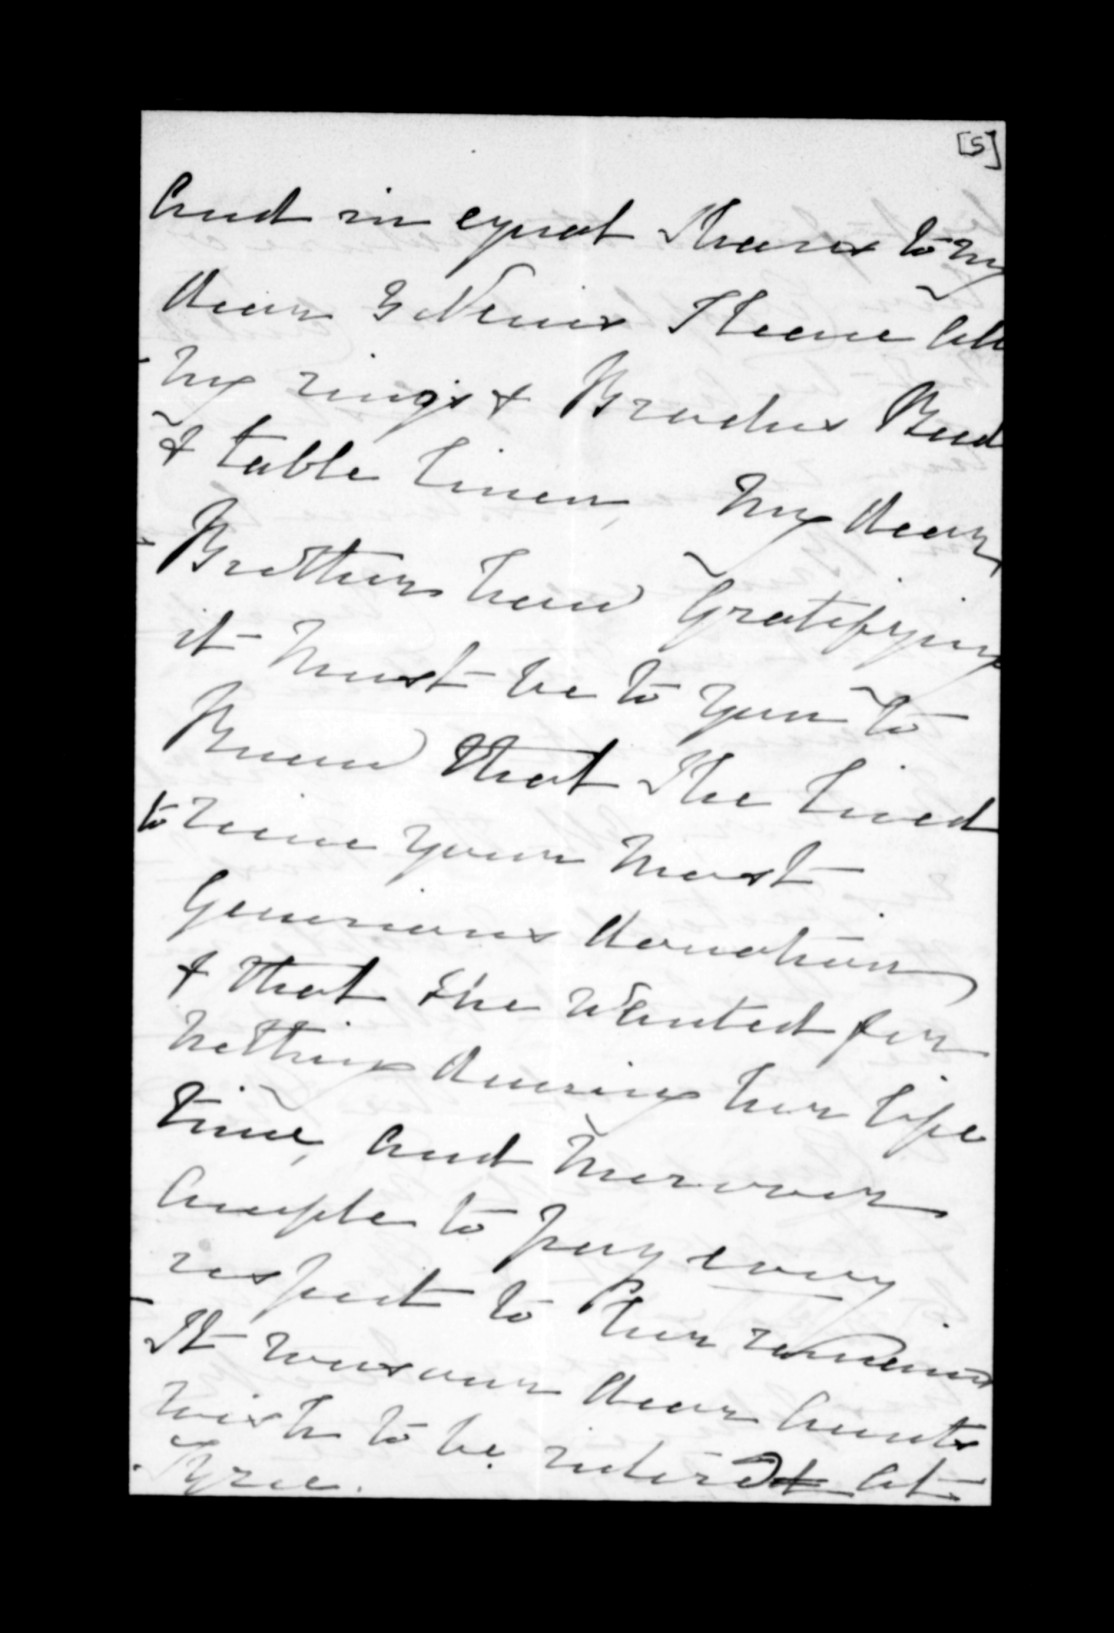 [5]
and in equal shares to my
dear 3 Neices I leave all
my rings & Broches Bed
& table linen, My dear
Brother how gratifying
it must be to you to
Know that she lived
to your most
Generious donation
& that she wanted for
nothing during her life
time, and moreover
ample to pay every
respect to her remains
It was our dear Aunts
wish to be at
Tyree.